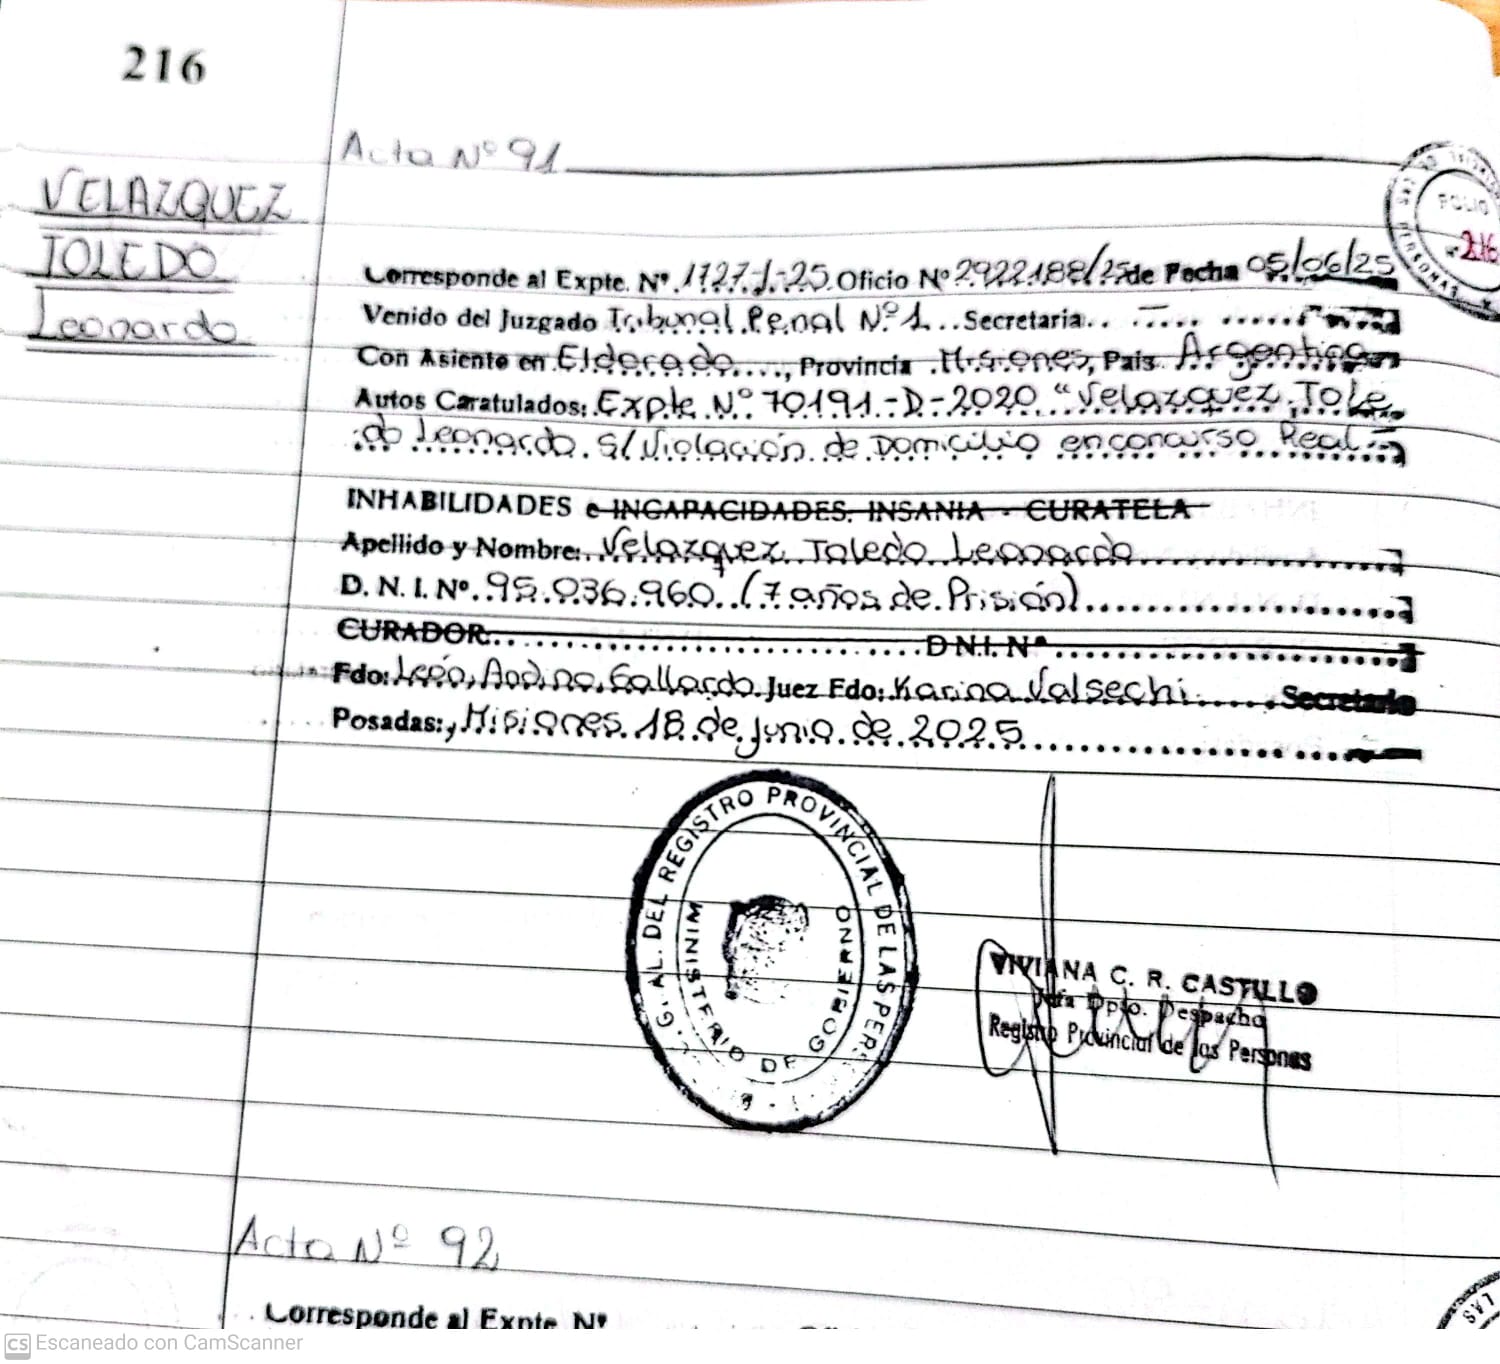 216
Acta Nº 91
VELAZQUEZ
TOLEDO
Leonardo
FOLIO
216
Corresponde al Expte. Nº 1727-J-25 Oficio Nº 2922188/25 de Fecha 05/06/25
Venido del Juzgado Tribunal Penal Nº 1 Secretaria
Con Asiento en Eldorado, Provincia Misiones, Pais Argentina
Autos Caratulados: Expte Nº 70191-D-2020 "Velazquez Tole
do Leonardo s/ Violación de Domicilio en concurso Real
INHABILIDADES e INCAPACIDADES. INSANIA - CURATELA
Apellido y Nombre: Velazquez Toledo Leonardo
D. N. I. Nº 95.036.960 (7 años de Prisión)
CURADOR: D N.I. Nº
Fdo: León, Andino, Gallardo Juez Fdo: Karina Valsechi Secretario
Posadas:, Misiones 18 de junio de 2025
G. AL. DEL REGISTRO PROVINCIAL DE LAS PERS
MINISTERIO DE GOBIERNO
VIVIANA C. R. CASTILLO
Jefa Dpto. Despacho
Registro Provincial de las Personas
Acta Nº 92
Corresponde al Expte Nº
LAS
CS Escaneado con CamScanner